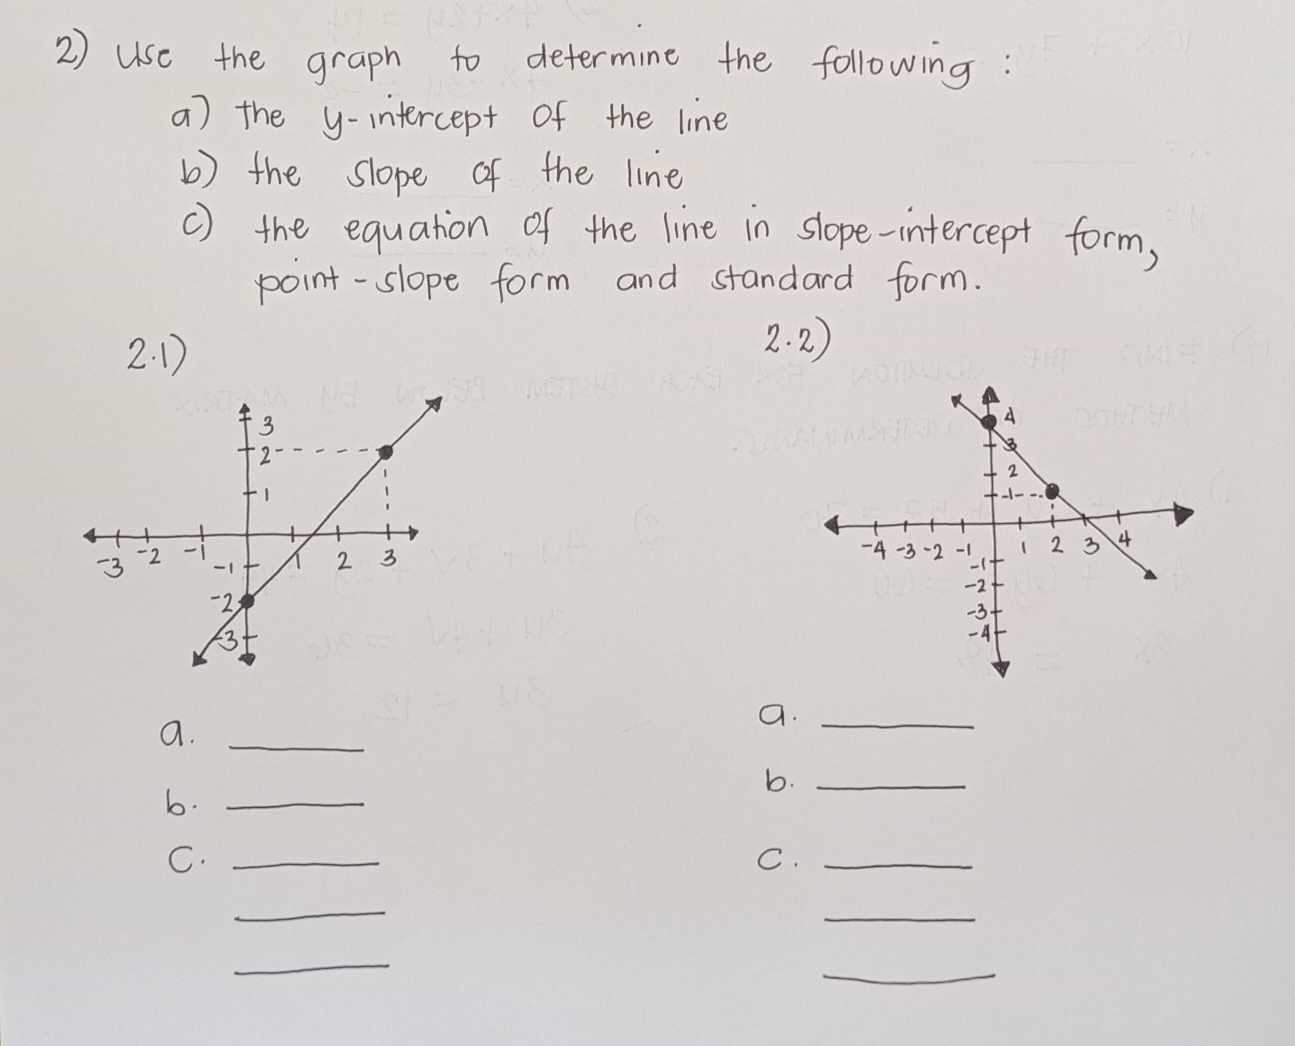 2) Use the graph to determine the following :
a) The y-intercept of the line
b) the slope of the line
c) the equation of the line in slope-intercept form,
point-slope form and standard form.
2.1)
3
2
1
-3 -2 -1 1 2 3
-1
-2
-3
a.
b.
c.
2.2)
4
3
2
1
-4 -3 -2 -1 1 2 3 4
-1
-2
-3
-4
a.
b.
c.